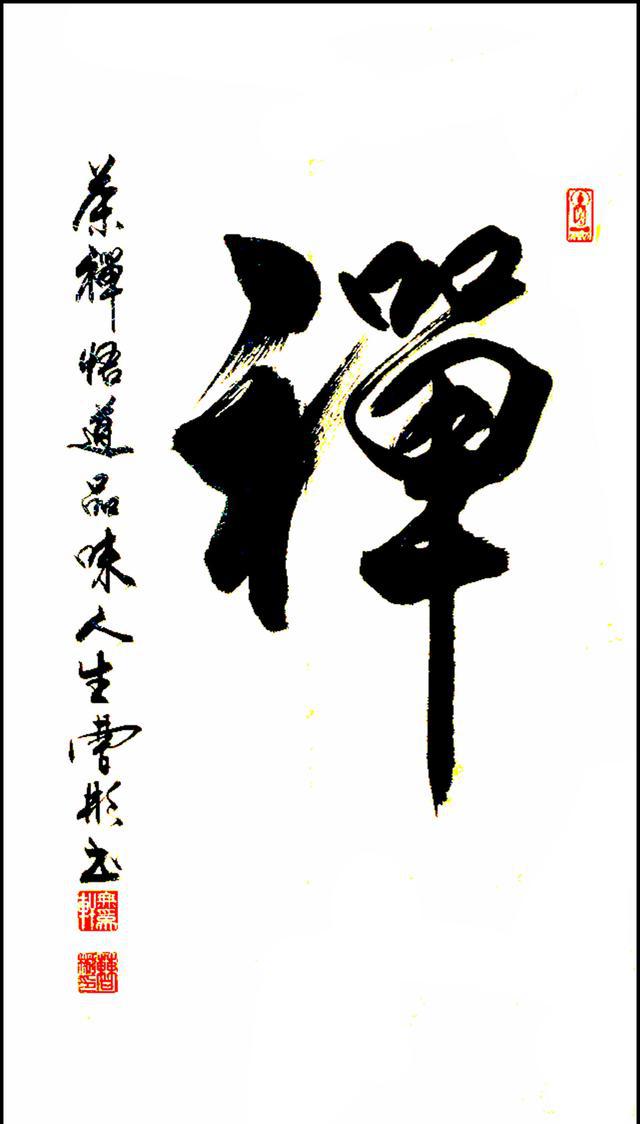 禪
茶禪悟道品味人生曹彬书